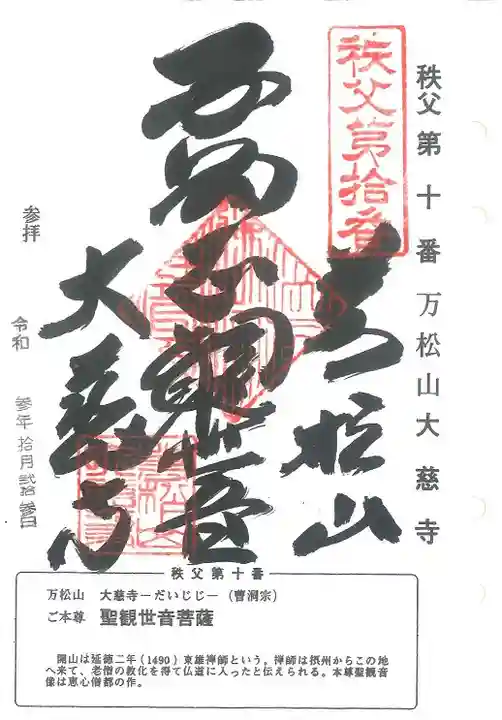 秩父第十番 万松山大慈寺
秩父第拾番
万松山
聖観世音
大慈寺
参拝
令和 参年 拾月 弐拾参日
秩父第十番
万松山 大慈寺－だいじじ－（曹洞宗）
ご本尊 聖観世音菩薩
開山は延徳二年（1490）東雄禅師という。禅師は摂州からこの地
へ来て、老僧の教化を得て仏道に入ったと伝えられる。本尊聖観音
像は恵心僧都の作。